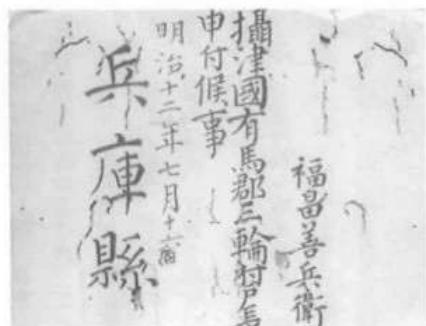 福畠善兵衛
攝津國有馬郡三輪村戸長
申付候事
明治十二年七月十六日
兵庫縣